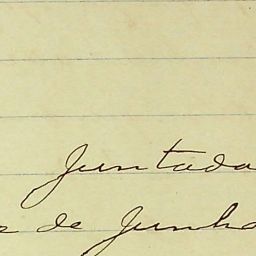 Juntada
de Junho